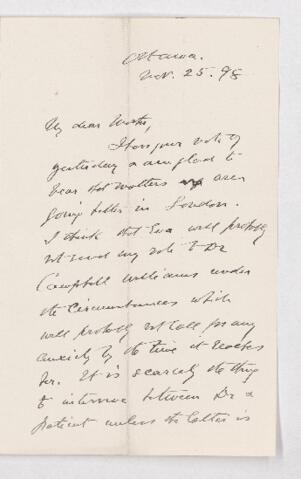 Ottawa.
Nov. 25. 98
My dear
I have your note of
yesterday & am glad to
hear that matters are
going better in London.
I think that Eva will probably
not send my note to Dr
Campbell Williams under
the circumstances which
will probably not call for any
anxiety by the time it reaches
her. It is scarcely the thing
to intervene between Dr &
patient unless the latter is